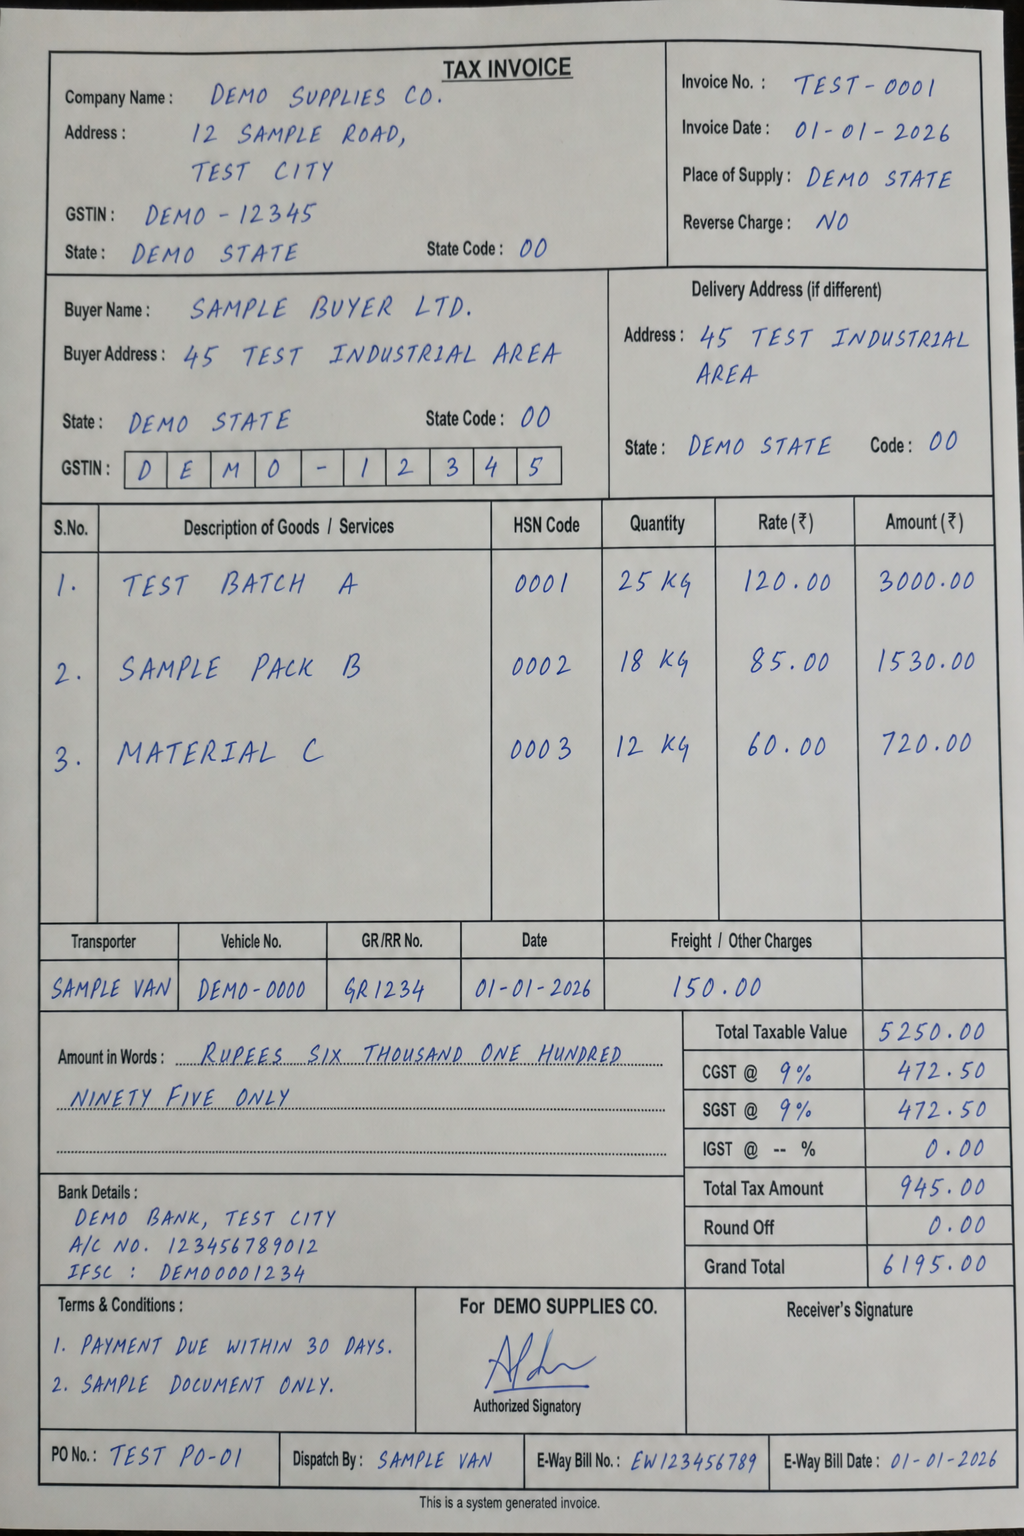 TAX INVOICE
Company Name : DEMO SUPPLIES CO.
Address : 12 SAMPLE ROAD,
TEST CITY
GSTIN : DEMO - 12345
State : DEMO STATE State Code : 00
Invoice No. : TEST - 0001
Invoice Date : 01 - 01 - 2026
Place of Supply : DEMO STATE
Reverse Charge : NO
Buyer Name : SAMPLE BUYER LTD.
Buyer Address : 45 TEST INDUSTRIAL AREA
State : DEMO STATE State Code : 00
GSTIN : D E M O - 1 2 3 4 5
Delivery Address (if different)
Address : 45 TEST INDUSTRIAL
AREA
State : DEMO STATE Code : 00
S.No. Description of Goods / Services HSN Code Quantity Rate (₹) Amount (₹)
1. TEST BATCH A 0001 25 KG 120.00 3000.00
2. SAMPLE PACK B 0002 18 KG 85.00 1530.00
3. MATERIAL C 0003 12 KG 60.00 720.00
Transporter Vehicle No. GR/RR No. Date Freight / Other Charges
SAMPLE VAN DEMO-0000 GR1234 01-01-2026 150.00
Amount in Words : RUPEES SIX THOUSAND ONE HUNDRED
NINETY FIVE ONLY
Total Taxable Value 5250.00
CGST @ 9% 472.50
SGST @ 9% 472.50
IGST @ -- % 0.00
Total Tax Amount 945.00
Round Off 0.00
Grand Total 6195.00
Bank Details :
DEMO BANK, TEST CITY
A/C NO. 123456789012
IFSC : DEMO0001234
Terms & Conditions :
1. PAYMENT DUE WITHIN 30 DAYS.
2. SAMPLE DOCUMENT ONLY.
For DEMO SUPPLIES CO.
Authorized Signatory
Receiver's Signature
PO No. : TEST PO-01 Dispatch By : SAMPLE VAN E-Way Bill No. : EW123456789 E-Way Bill Date : 01-01-2026
This is a system generated invoice.